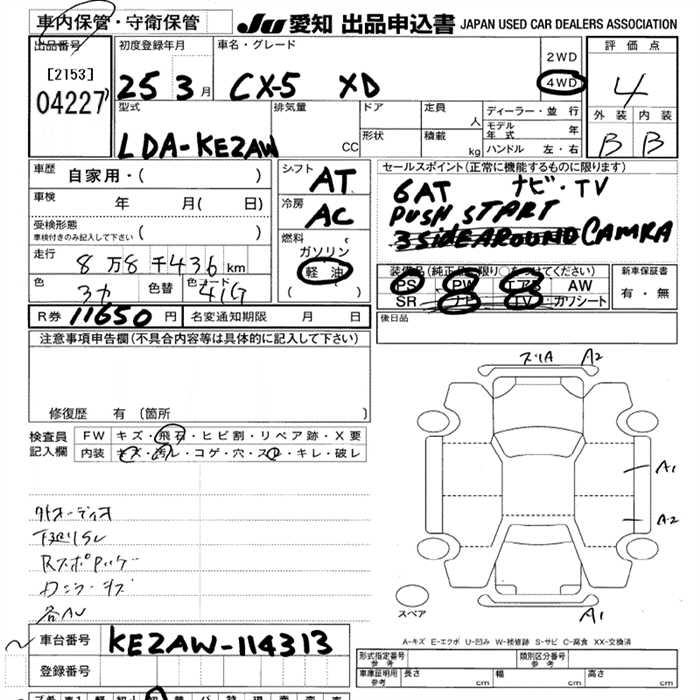 車内保管・守衛保管 JU 愛知 出品申込書 JAPAN USED CAR DEALERS ASSOCIATION
出品番号 初度登録年月 車名・グレード 2WD 評価点
[2153] 25 3月 CX-5 XD 4WD 4
04227
型式 排気量 ドア 定員 ディーラー・並行 外装 内装
人 モデル年式 年
LDA-KE2AW CC 形状 積載 kg ハンドル 左・右 B B
車歴 自家用・( ) シフト AT セールスポイント(正常に機能するものに限ります)
車検 年 月( 日) 冷房 AC 6AT ナビ・TV
受検形態 車検付きのみ記入して下さい ( ) 燃料 PUSH START
ガソリン 3 SIDE AROUND CAMRA
走行 8万8千436km 軽油 装備品(純正品に限り○をつけてください) 新車保証書
色 色替 色コード 41G ( ) PS PW エアB AW 有・無
SR ナビ TV カワシート
R券 11650円 名変通知期限 月 日 後日品
注意事項申告欄(不具合内容等は具体的に記入して下さい)
ズリA A2
修復歴 有 (箇所
検査員記入欄 FW キズ・飛石・ヒビ割・リペア跡・X要
内装 キズ・汚れ・コゲ・穴・スレ・キレ・破レ
A1
A2
スペア A1
A-キズ E-エクボ U-凹み W-補修跡 S-サビ C-腐食 XX-交換済
車台番号 KE2AW-114313
形式指定番号 参考 類別区分番号 参考
登録番号 車庫証明用 参考 長さ cm 幅 cm 高さ cm